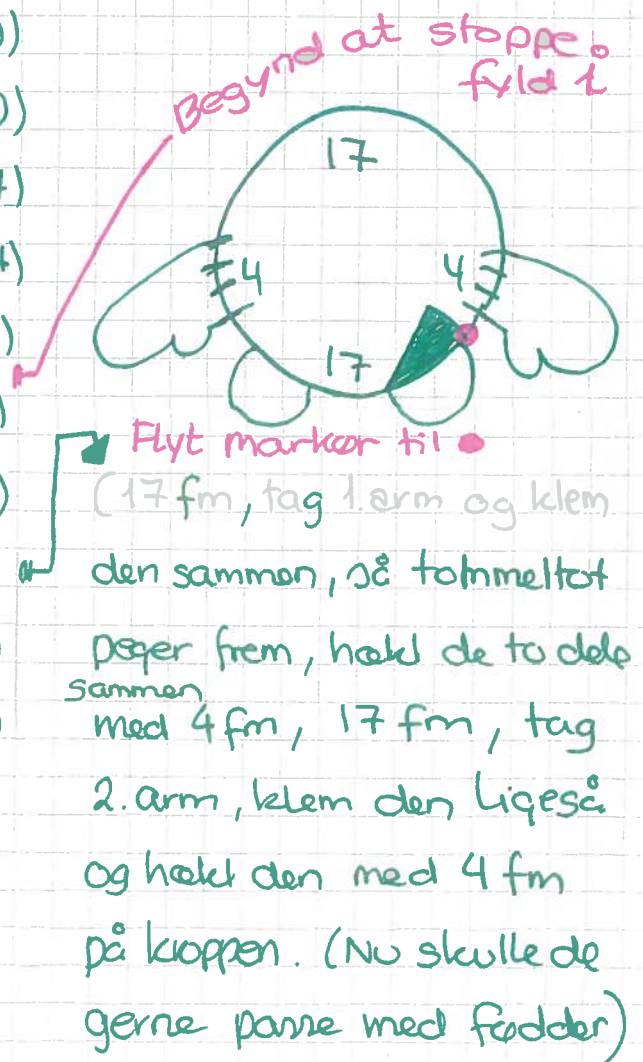 Begynd at stoppe.
fyld i
17
4
4
17
Flyt markør til
(17 fm, tag 1. arm og klem
den sammen, så tommeltot
peger frem, hækl de to dele
sammen
med 4 fm, 17 fm, tag
2. arm, klem den ligeså
og hækl den med 4 fm
på kroppen. (Nu skulle de
gerne passe med fødder)